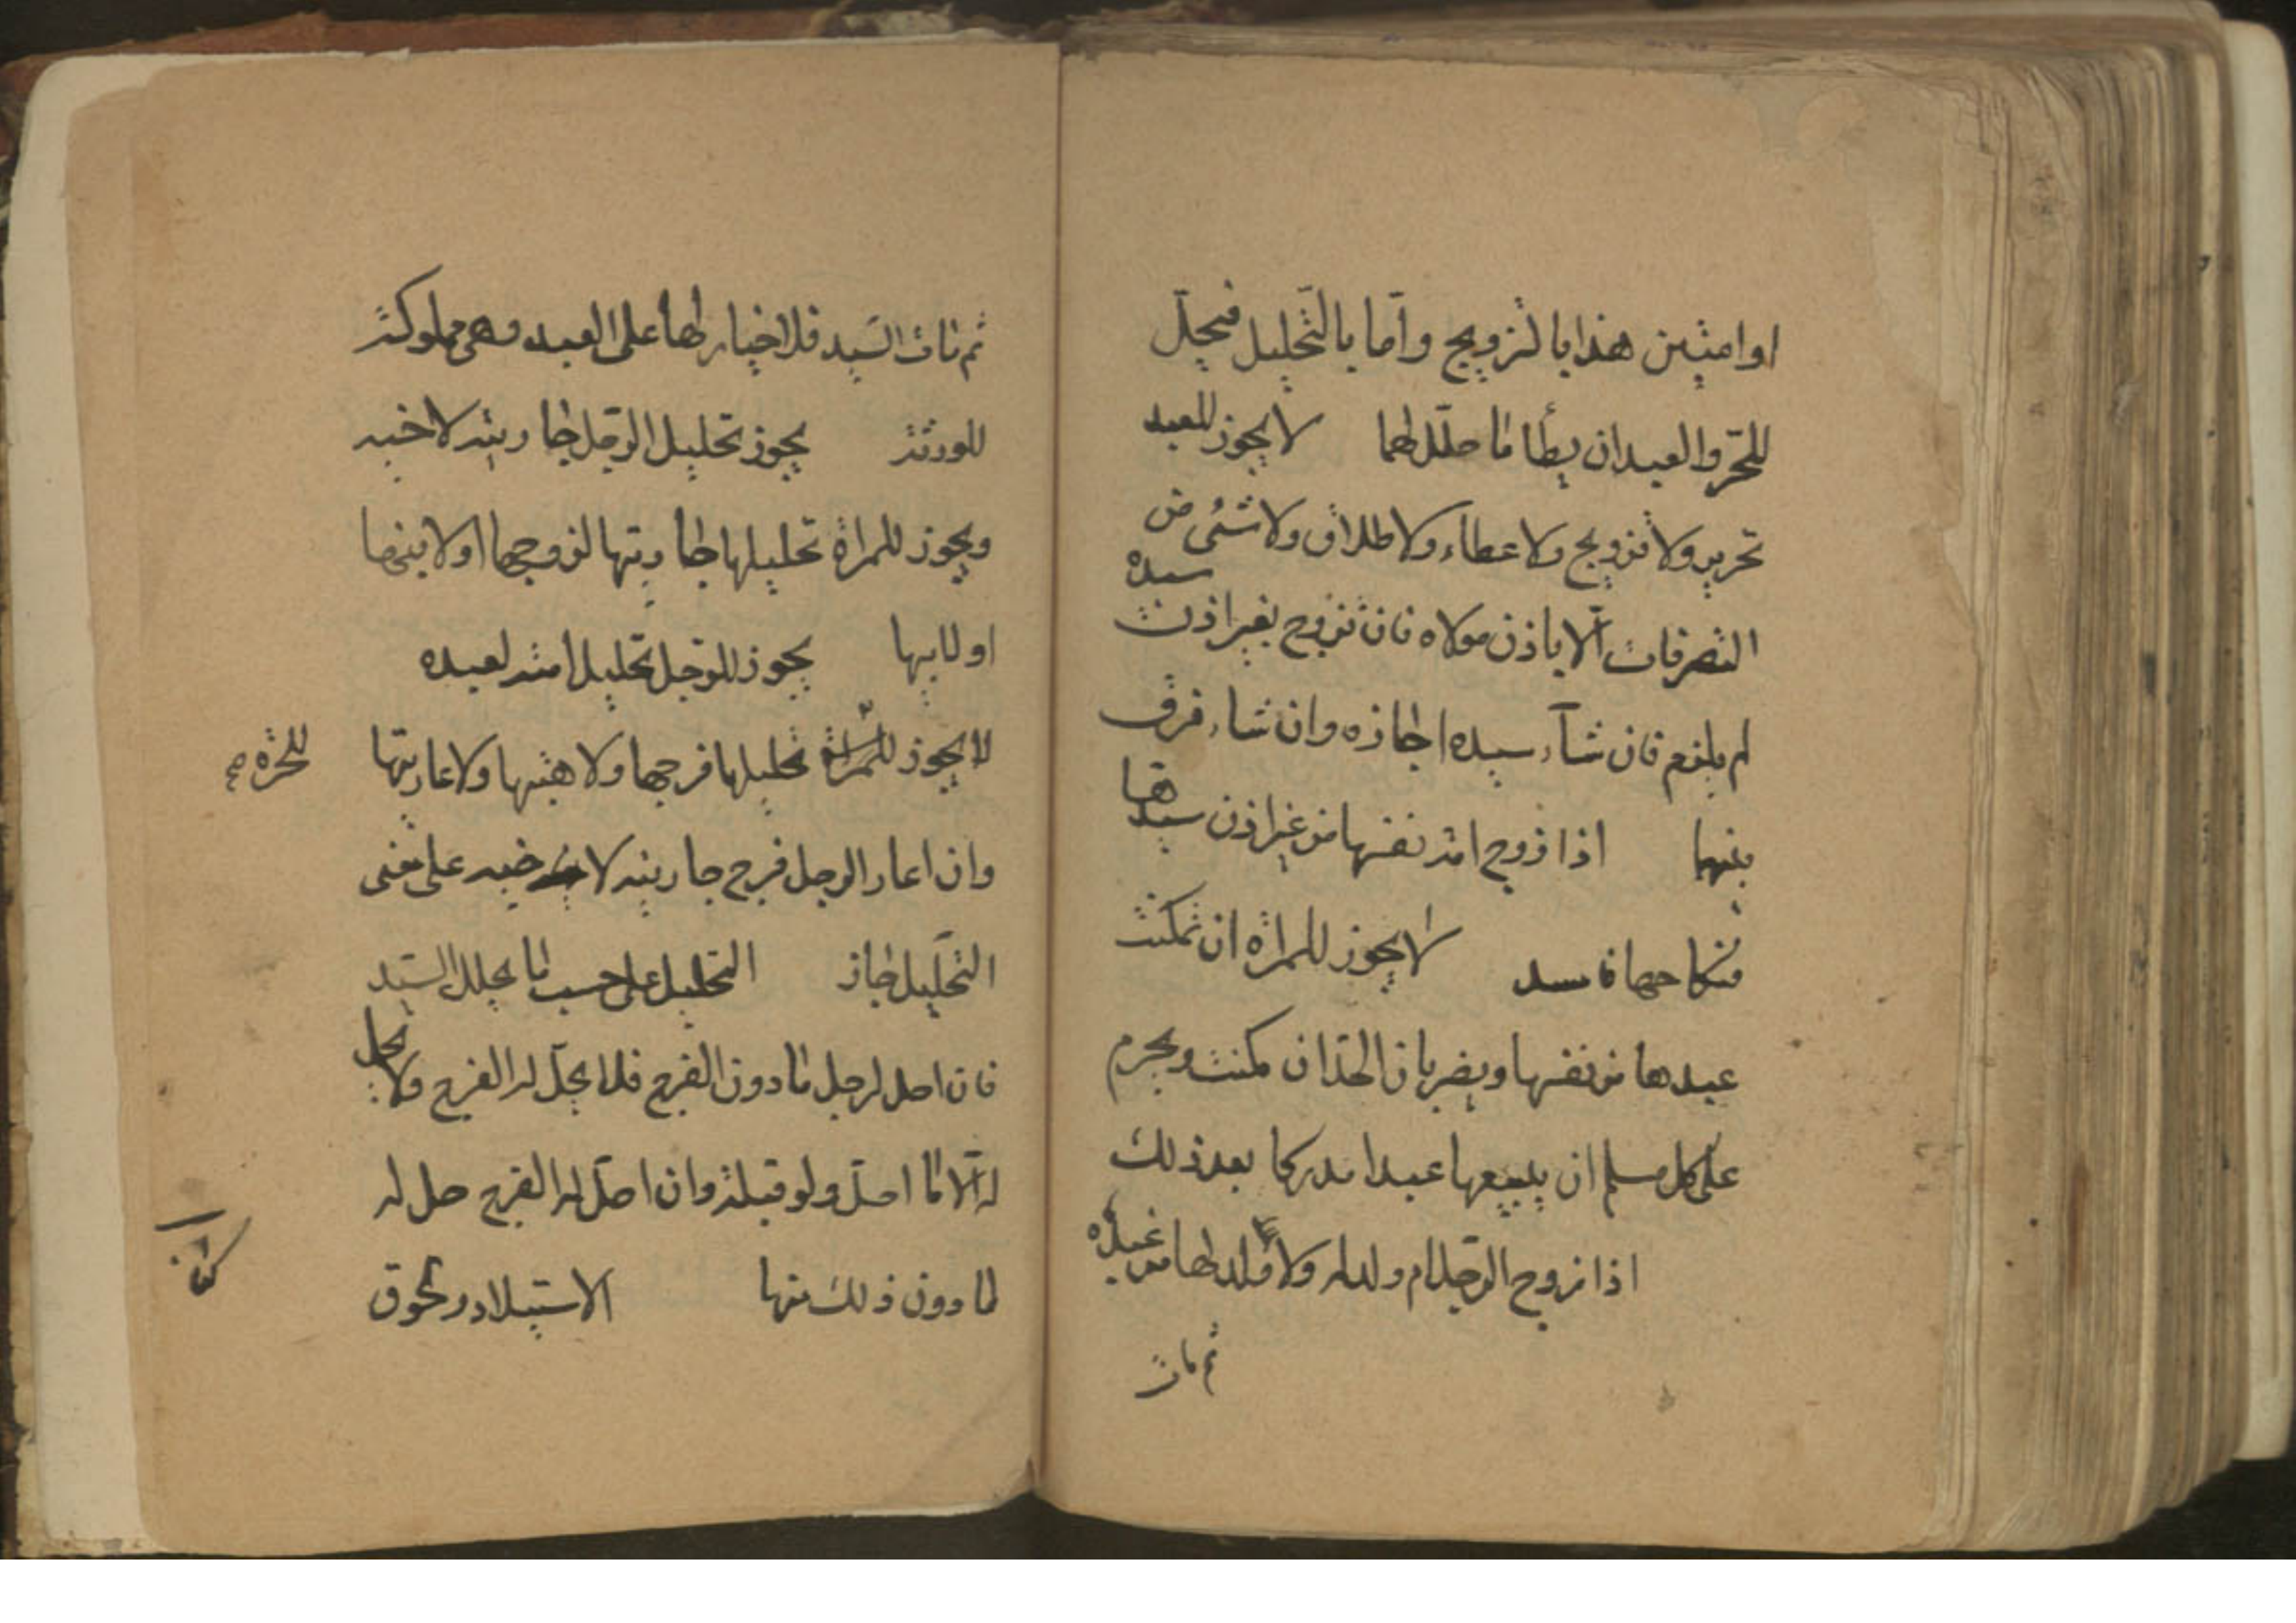 او امتين هذا بالتزويج وأما بالتحليل فيحلّ
للحرّ والعبد ان يطأ ما حلّل لهما لا يجوز للعبد
تحرير ولا تزويج ولا عطاء ولا طلاق ولا شئ من
التصرفات الّا باذن مولاه فان تزوج بغير اذن سيده
لم يلزم فان شآء سيده اجازه وان شاء فرق
بينهما اذا زوج امة نفسها من غير اذن سيدها
فنكاحها فاسد لا يجوز للمراة ان تمكنت
عبدها من نفسها ويضربان الحدّ ان مكنت ويحرم
على كل مسلم ان يبيعها عبدا مدركا بعد ذلك
اذا زوج الرّجل ام ولد له ولا ولد لها من عبده
ثم مات
ثم مات السّيد فلا خيار لها على العبد وهى مملوكة
للورثة يجوز تحليل الرّجل جاريته لاخيه
ويجوز للمراة تحليلها جاريتها لزوجها او لابنها
او لابيها يجوز للرّجل تحليل امته لعبده
لا يجوز للمراة تحليلها فرجها ولا هبتها ولا عاريتها
للحرّة صح
وان اعار الرجل فرج جاريته لاخيه على معنى
التّحليل جاز التحليل على حسب ما يحلل السّيد
فان احل لرجل ما دون الفرج فلا يحلّ له الفرج ولا يحل
له الّا ما احلّ ولو قبلة وان احلّ له الفرج حل له
ما دون ذلك منها الاستيلاد ولحوق